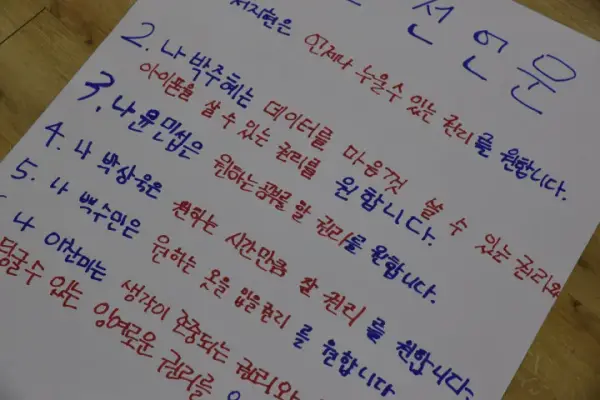 선언문
서지현은 언제나 누울수 있는 권리를 원합니다.
2. 나 박주혜는 데이터를 마음껏 쓸 수 있는 권리와
아이폰을 살 수 있는 권리를 원합니다.
3. 나 윤민섭은 원하는 공부를 할 권리를 원합니다.
4. 나 박상욱은 원하는 시간만큼 잘 권리를 원합니다.
5. 나 백수민은 원하는 옷을 입을 권리를 원합니다
나 이산미는 생각이 존중되는 권리와
뒹굴수 있는 잉여로운 권리를